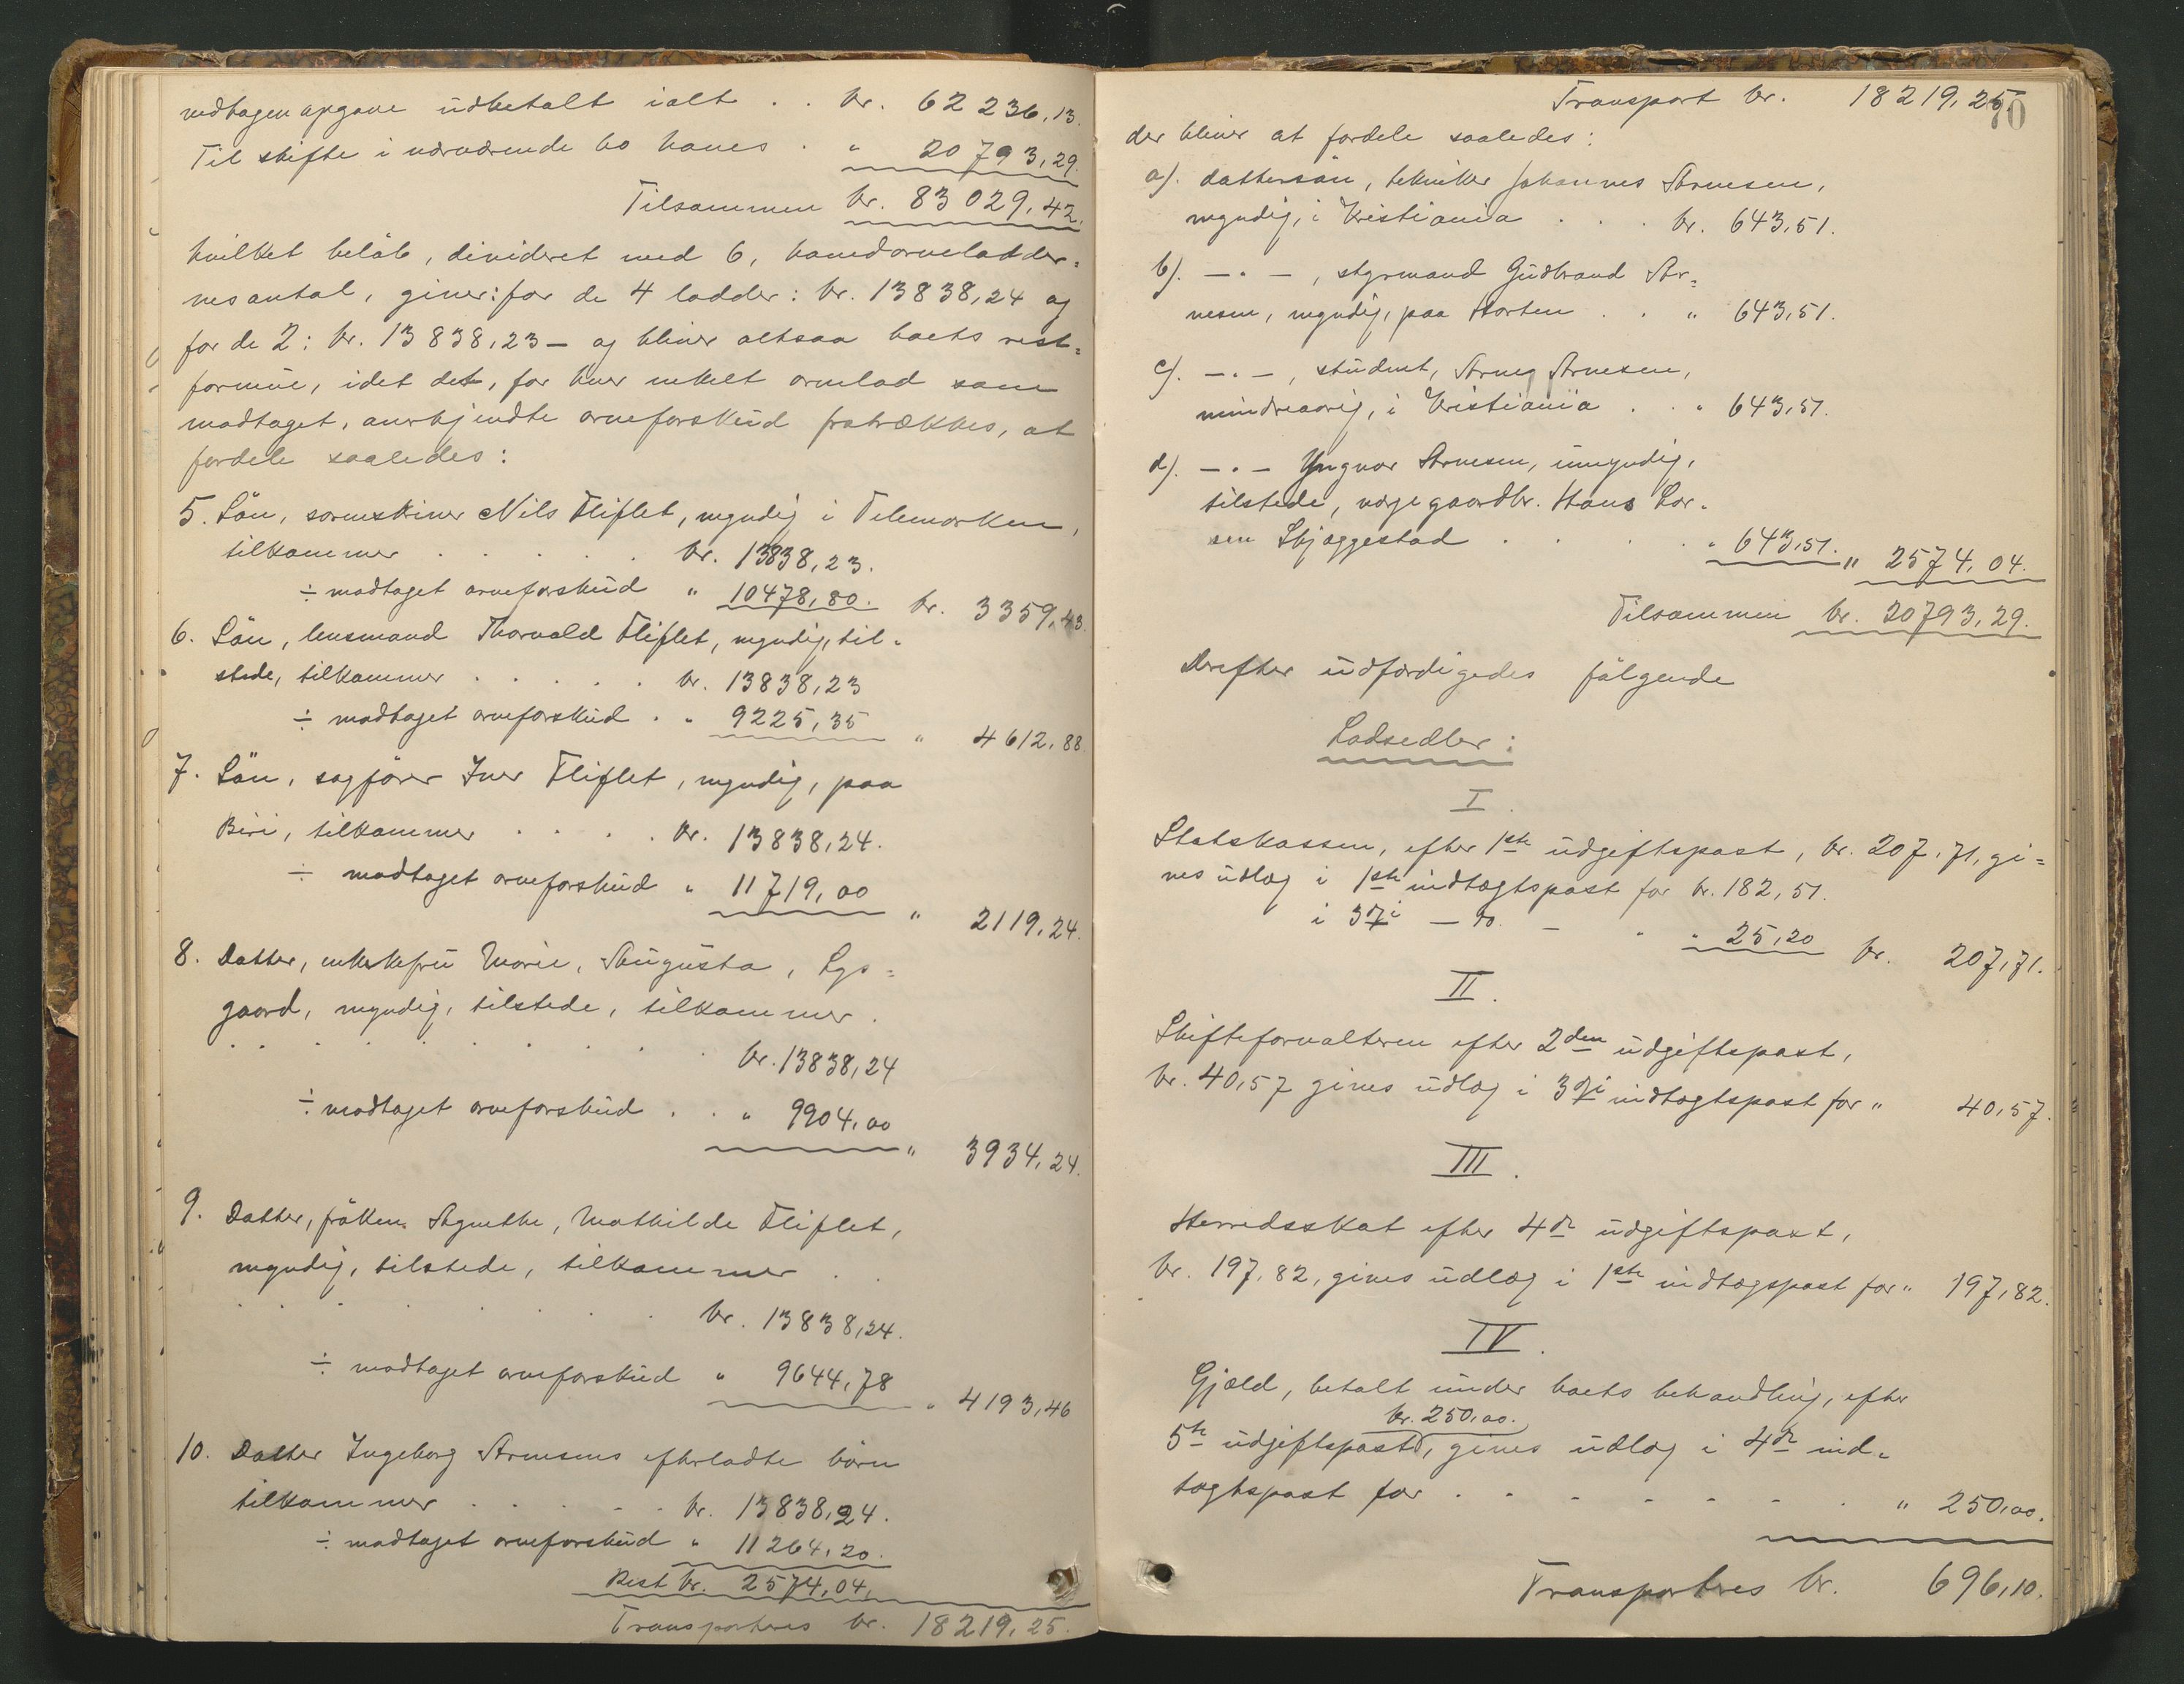 modtagen opgave üdbetalt ialt . . kr. 62 236,13.
Til skifte i nærværende bo haves . " 20 793,29.
Tilsammen kr. 83 029,42.
hvilket belöb, divideret med 6, hovedarveladder-
nes antal, giver: for de 4 lodder: kr. 13 838,24 og
for de 2: kr. 13 838,23 – og bliver altsaa boets rest-
formüe, idet det, for hver enkelt arvelod som
modtaget, anerkjendte arveforsküd fratrækkes, at
fordele saaledes:
5. Sön, sorenskriver Nils Fliflet, myndig i Telemarken,
tilkommer . . . . . kr. 13838,23.
÷ modtaget arveforsküd " 10478,80. kr. 3359,43.
6. Sön, lensmand Thorvald Fliflet, myndig, til-
stede, tilkommer . . . . . kr. 13838,23
÷ modtaget arveforsküd . " 9225,35 " 4612,88.
7. Sön, sagförer Iver Fliflet, myndig, paa
Biri, tilkommer . . . . kr. 13838,24.
÷ modtaget arveforsküd " 11719,00 " 2119,24.
8. Datter, enkefrü Marie, Aügüsta, Lys-
gaard, myndig, tilstede, tilkommer .
. . . . . . . . . kr. 13838,24
÷ modtaget arveforsküd . . " 9904,00
" 3934,24.
9. Datter, fröken Agnethe, Mathilde Fliflet,
myndig, tilstede, tilkommer . .
. . . . . . . kr. 13838,24.
÷ modtaget arveforsküd " 9644,78
" 4193,46
10. Datter Ingeborg Arnesens efterladte börn
tilkommer . . . . . kr. 13838,24.
÷ modtaget arveforsküd " 11264,20.
Rest kr. 2574,04.
Transporteres kr. 18219,25.
70
Transport kr. 18219,25.
der bliver at fordele saaledes:
a). dattersön, tekniker Johannes Arnesen,
myndig, i Kristiania . . . kr. 643,51.
b). — " — , styrmand Güdbrand Ar-
nesen, myndig, paa Horten . . " 643,51.
c). — " — , stüdent, Arne Arnesen,
mindreaarig, i Kristiania . . " 643,51.
d). — " — Yngvar Arnesen, ümyndig,
tilstede, værge gaardbr. Hans Lar-
sen Skjæggestad . . . . " 643,51. " 2574,04.
Tilsammen kr. 20793,29.
Derefter üdfærdigedes fölgende
Lodsedler:
I.
Statskassen, efter 1ste üdgiftspost, kr. 207,71, gi-
ves üdlæg i 1ste indtægtspost for kr. 182,51.
i 3die — do. — " " 25,20 kr. 207,71.
II.
Skifteforvalteren efter 2den üdgiftspost,
kr. 40,57 gives üdlæg i 3die indtægtspost for " 40,57.
III.
Herredsskat efter 4de üdgiftspost,
kr. 197,82, gives üdlæg i 1ste indtægspost for " 197,82.
IV.
Gjæld, betalt ünder boets behandling, efter
kr. 250,00.
5te üdgiftspost, gives üdlæg i 4de ind-
tægtspost for . . . . . . . " 250,00.
Transporteres kr. 696,10.